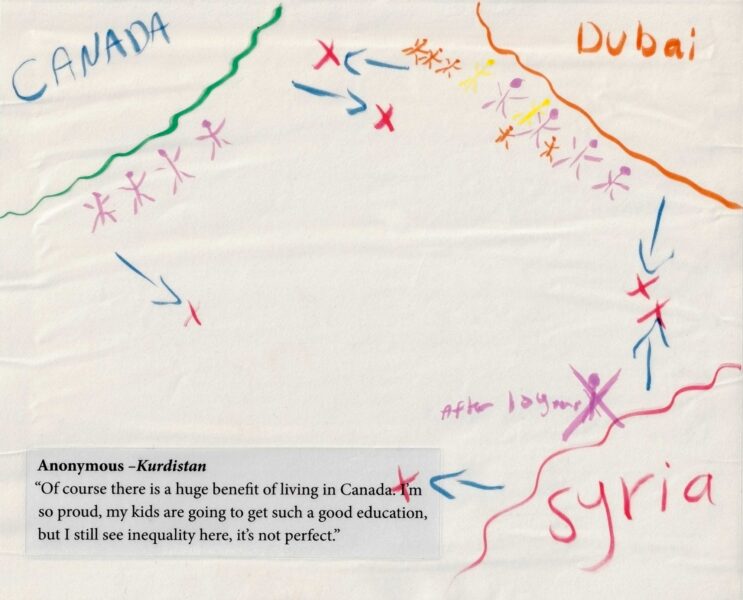 CANADA
Dubai
After 10 years
syria
Anonymous –Kurdistan
“Of course there is a huge benefit of living in Canada. I’m
so proud, my kids are going to get such a good education,
but I still see inequality here, it’s not perfect.”